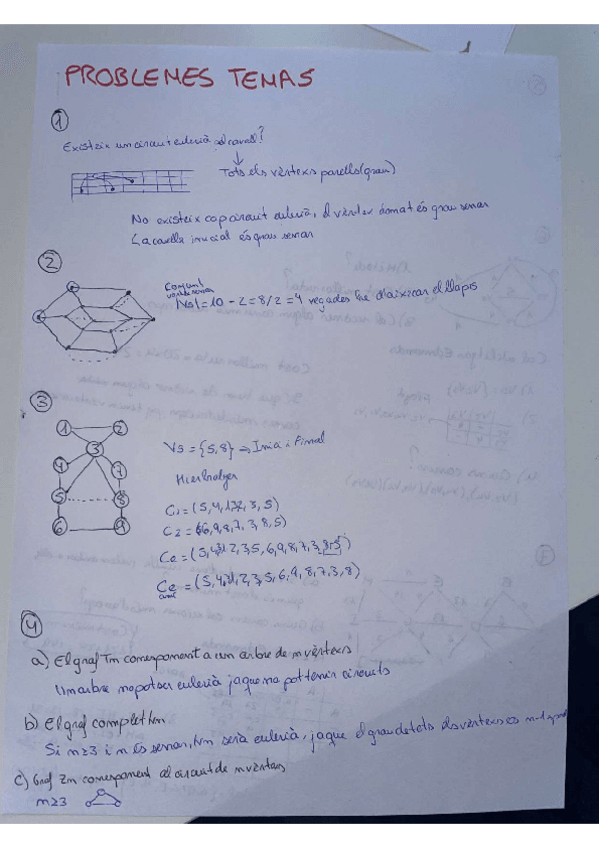 PROBLEMES TEMA 5
1
Existeix un circuit eulerià del cavall?
Tots els vèrtexs parells (grau)
No existeix cap circuit eulerià, el vèrtex donat és grau senar
La casella inicial és grau senar
2
Conjunt
vertex senars
|Vs|=10-2=8/2=4 vegades he d'aixecar el llapis
3
1 2
3
4 7
5 8
6 9
Vs={5,8} ⇒ Inici i Final
Hierholzer
C1=(5,4,1,2,3,5)
C2=(6,9,8,7,3,8,5)
Ce=(5,4,3,1,2,3,5,6,9,8,7,3,8,5)
Ce=(5,4,3,1,2,3,5,6,9,8,7,3,8)
4
a) El graf Tm correspon a un arbre de m vèrtexs
Un arbre no pot ser eulerià ja que no pot tenir circuits
b) El graf complet Km
Si m≥3 i m és senar, Km serà eulerià, ja que el grau de tots els vèrtexs és m-1
c) Graf Zm correspon al circuit de m vèrtexs
m≥3